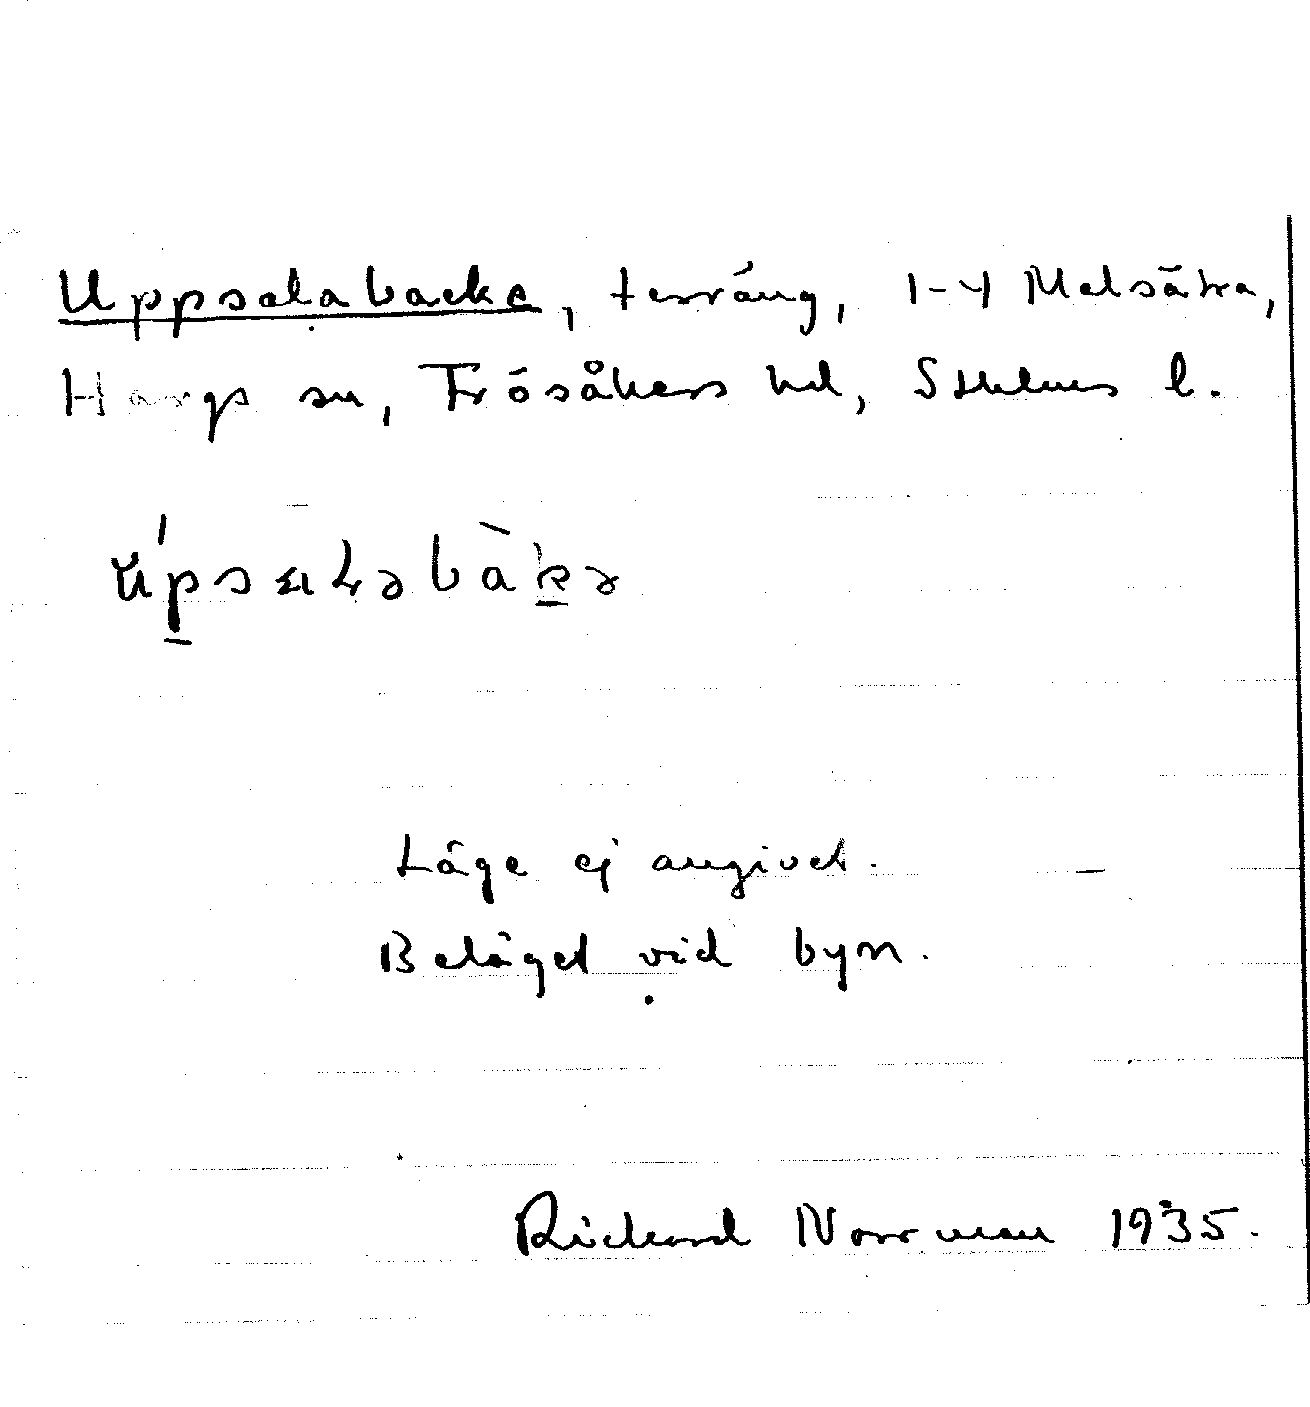 Uppsalabacke, terräng, 1-4 Malsätra,
Hargs sn, Frösåkers hd, Sthlms l.
Läge ej angivet.
Beläget vid byn.
Rickard Norrman 1935.